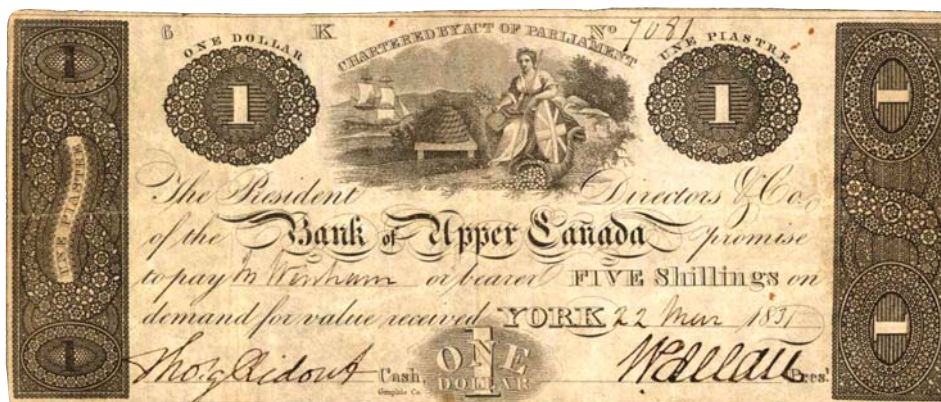 6 K Nº 7081
ONE DOLLAR CHARTERED BY ACT OF PARLIAMENT UNE PIASTRE
1 1 1 1
The President Directors & Co.
of the Bank of Upper Canada promise
to pay or bearer FIVE Shillings on
demand for value received YORK 22 1831
Thos G Ridout Cash. ONE 1 DOLLAR Wm Allan Pres!
Graphic Co.
UNE PIASTRE
1 1